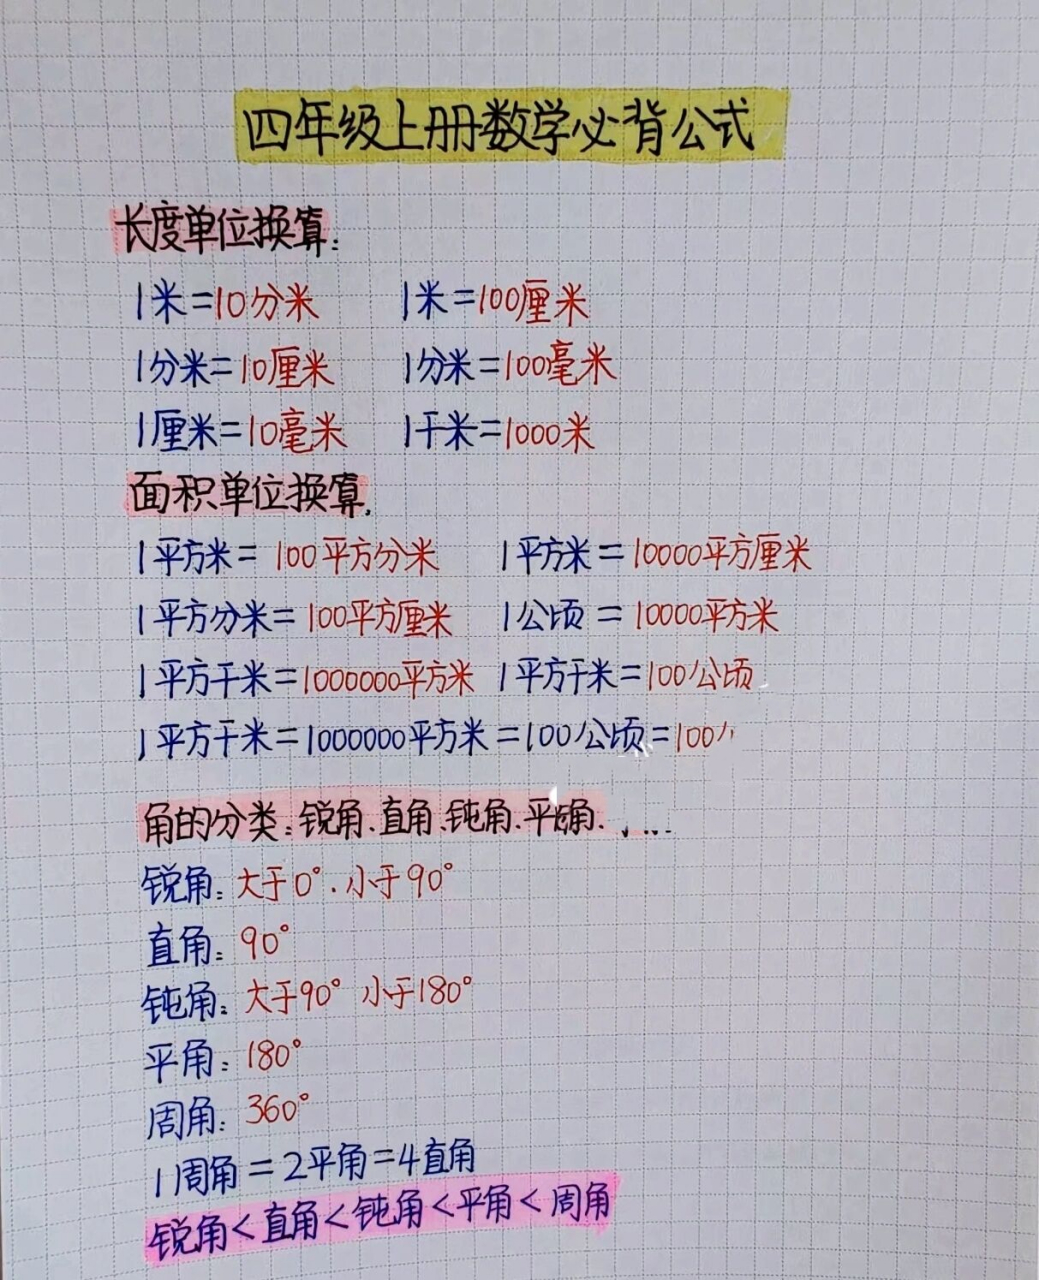 四年级上册数学必背公式
长度单位换算:
1米=10分米 1米=100厘米
1分米=10厘米 1分米=100毫米
1厘米=10毫米 1千米=1000米
面积单位换算.
1平方米=100平方分米 1平方米=10000平方厘米
1平方分米=100平方厘米 1公顷=10000平方米
1平方千米=1000000平方米 1平方千米=100公顷
1平方千米=1000000平方米=100公顷=100
角的分类:锐角、直角、钝角、平角、
锐角:大于0°.小于90°
直角:90°
钝角:大于90° 小于180°
平角:180°
周角:360°
1周角=2平角=4直角
锐角<直角<钝角<平角<周角